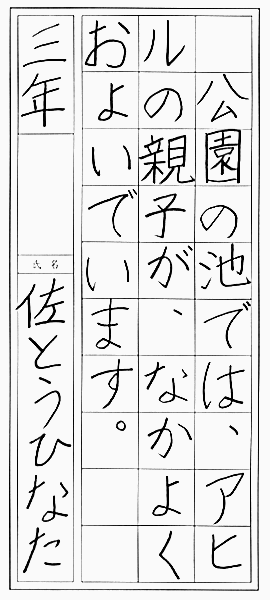 公園の池では、アヒ
ルの親子が、なかよく
およいでいます。
三年
氏名
佐とうひなた